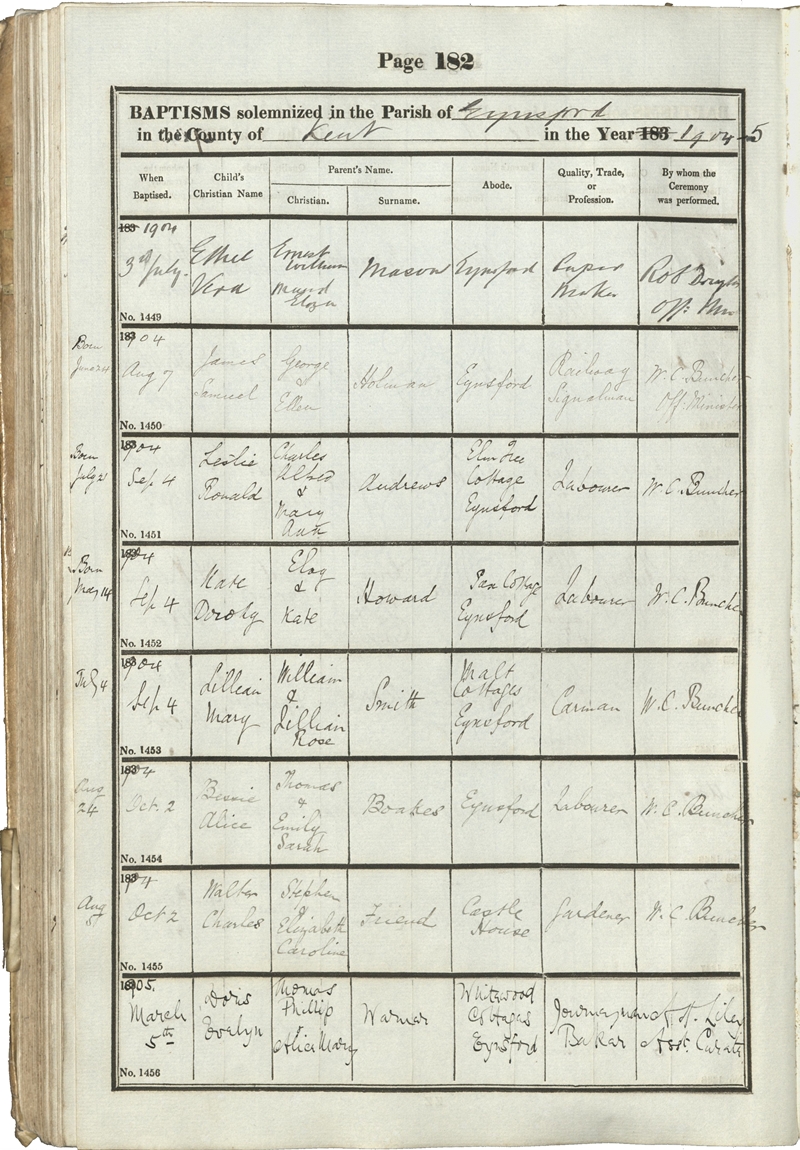 Page 182
BAPTISMS solemnized in the Parish of Eynsford
in the County of Kent in the Year 183 1904-5
When Baptised.
Child's Christian Name
Parent's Name.
Christian.
Surname.
Abode.
Quality, Trade, or Profession.
By whom the Ceremony was performed.
183 1904
3rd July
Ethel
Vera
Ernest
William
Maud
Eliza
Mason
Eynsford
Paper
Maker
Rob
Off. Min
No. 1449
Born
June 24
183 04
Aug 7
James
Samuel
George
&
Ellen
Holman
Eynsford
Railway
Signalman
W. C. Buncher
Off. Minister
No. 1450
Born
July 2
183 904
Sep 4
Leslie
Ronald
Charles
Alfred
&
Mary
Ann
Andrews
Elm Tree
Cottage
Eynsford
Labourer
W. C. Buncher
No. 1451
Born
May 14
183 904
Sep 4
Kate
Doroty
Eloy
&
Kate
Howard
Cottage
Eynsford
Labourer
W. C. Buncher
No. 1452
July 4
183 904
Sep 4
Lillian
Mary
William
&
Lillian
Rose
Smith
Malt
Cottages
Eynsford
Carman
W. C. Buncher
No. 1453
Aug
24
183 904
Oct. 2
Bessie
Alice
Thomas
&
Emily
Sarah
Boakes
Eynsford
Labourer
W. C. Buncher
No. 1454
Aug
8
183 904
Oct 2
Walter
Charles
Stephen
&
Elizabeth
Caroline
Friend
Castle
House
Gardener
W. C. Buncher
No. 1455
1905.
March
5th
Doris
Evelyn
Thomas
Phillip
&
Alice Mary
Warner
Whitewood
Cottages
Eynsford
Journeyman
Baker
Liley
Asst. Curate
No. 1456